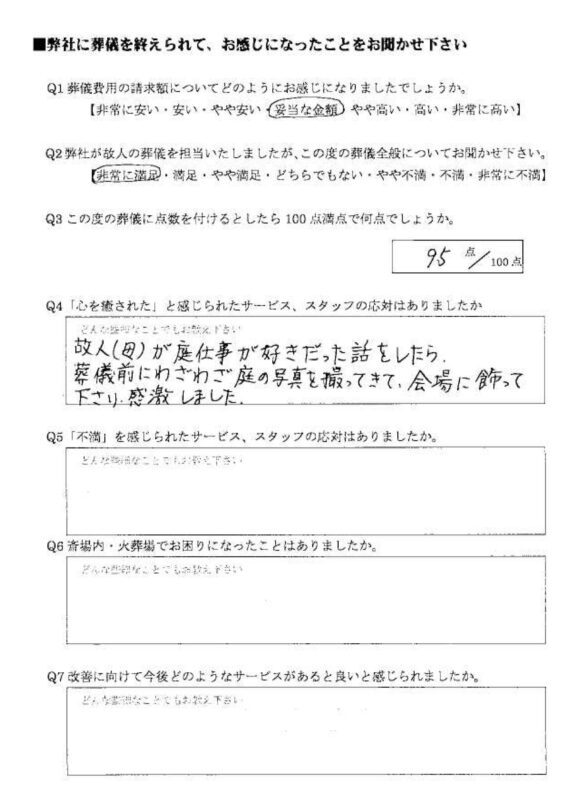 ■弊社に葬儀を終えられて、お感じになったことをお聞かせ下さい
Q1 葬儀費用の請求額についてどのようにお感じになりましたでしょうか。
【非常に安い・安い・やや安い・妥当な金額・やや高い・高い・非常に高い】
Q2 弊社が故人の葬儀を担当いたしましたが、この度の葬儀全般についてお聞かせ下さい。
【非常に満足・満足・やや満足・どちらでもない・やや不満・不満・非常に不満】
Q3 この度の葬儀に点数を付けるとしたら100点満点で何点でしょうか。
95 点/100点
Q4「心を癒された」と感じられたサービス、スタッフの応対はありましたか
どんな些細なことでもお教え下さい
故人(母)が庭仕事が好きだった話をしたら、
葬儀前にわざわざ庭の写真を撮ってきて、会場に飾って
下さり、感激しました。
Q5「不満」を感じられたサービス、スタッフの応対はありましたか。
どんな些細なことでもお教え下さい
Q6 斎場内・火葬場でお困りになったことはありましたか。
どんな些細なことでもお教え下さい
Q7 改善に向けて今後どのようなサービスがあると良いと感じられましたか。
どんな些細なことでもお教え下さい